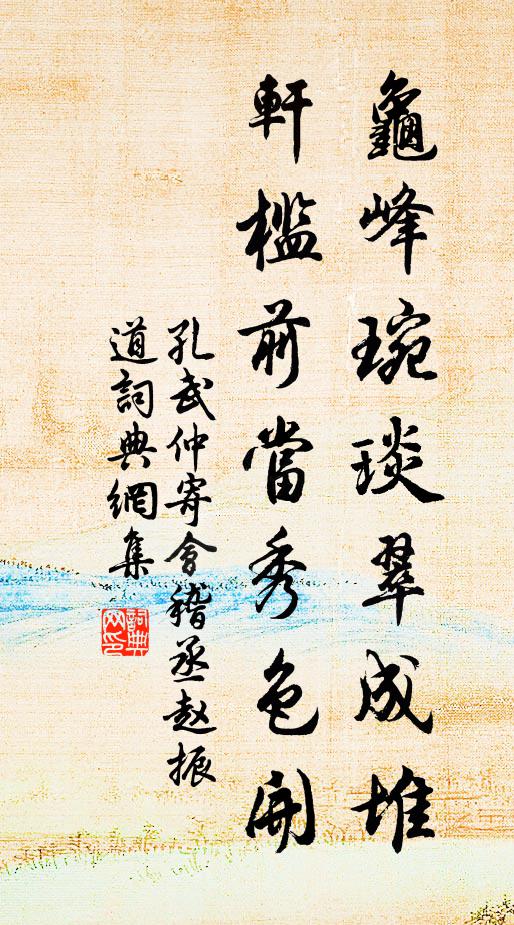 龜峰琬琰翠成堆
軒檻前當秀色開
孔武仲寄會稽丞赵振
道詞典網集
詞典网印